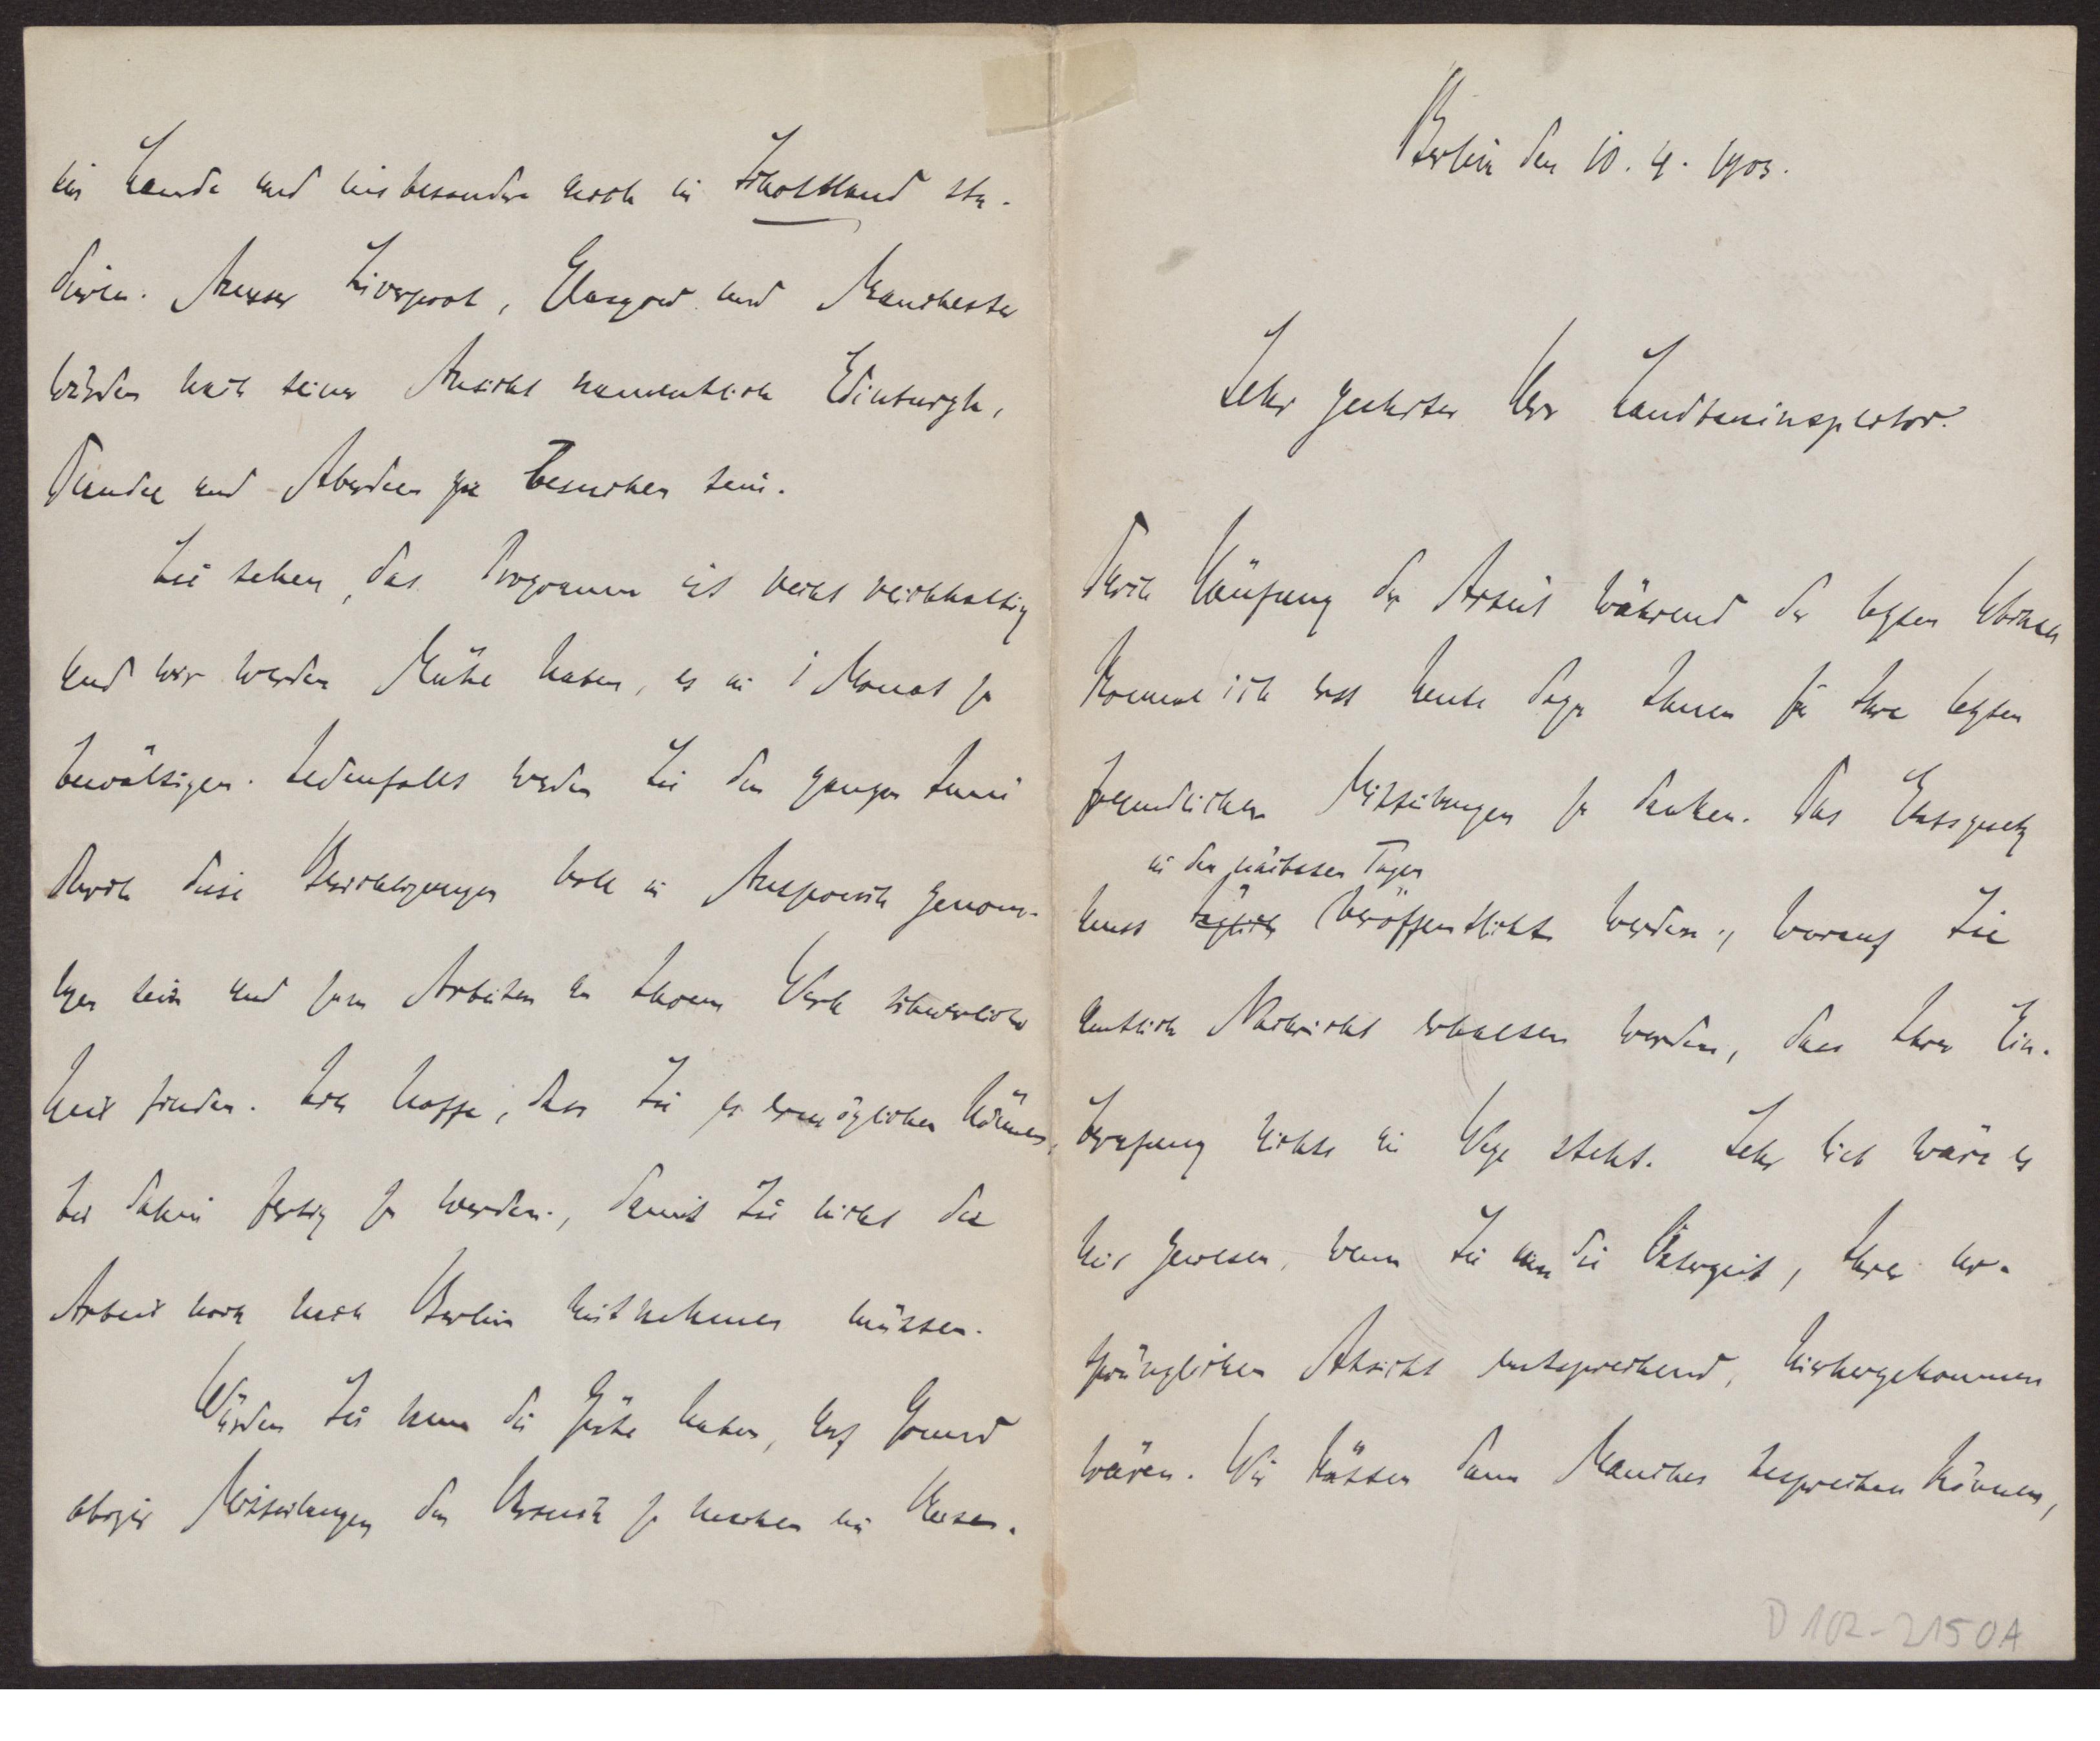 Berlin den 10. 4. 1903.
Sehr geehrter Herr Landbauinspector!
Durch Häufung der Arbeit während der letzten Wochen
komme ich erst heute dazu Ihnen für Ihre letzten
freundlichen Mitteilungen zu danken. Das Etatsgesetz
in den nächsten Tagen
muss täglich veröffentlicht werden, worauf Sie
amtlich Nachricht erhalten werden, dass Ihrer Ein-
berufung nichts im Wege steht. Sehr lieb wäre es
mir gewesen, wenn Sie um die Osterzeit, Ihrer ur-
sprünglichen Absicht entsprechend, hierhergekommen
wären. Wir hätten dann Manches besprechen können,
im Lande und insbesondere noch in Schottland stu-
dieren. Ausser Liverpool, Glasgow und Manchester
würden nach seiner Ansicht namentlich Edinburgh,
Dundee und Aberdeen zu besuchen sein.
Sie sehen, das Programm ist recht reichhaltig
und wir werden Mühe haben, es in 1 Monat zu
bewältigen. Jedenfalls werden Sie den ganzen Juni
durch diese Besichtigungen voll in Anspruch genom-
men sein und zum Arbeiten an Ihrem Werk schwerlich
Zeit finden. Ich hoffe, dass Sie es ermöglichen können,
bis dahin fertig zu werden, damit Sie nicht die
Arbeit noch nach Berlin mitnehmen müssen.
Würden Sie nun die Güte haben, auf Grund
obiger Mitteilungen den Versuch zu machen ein
D 102-2150A